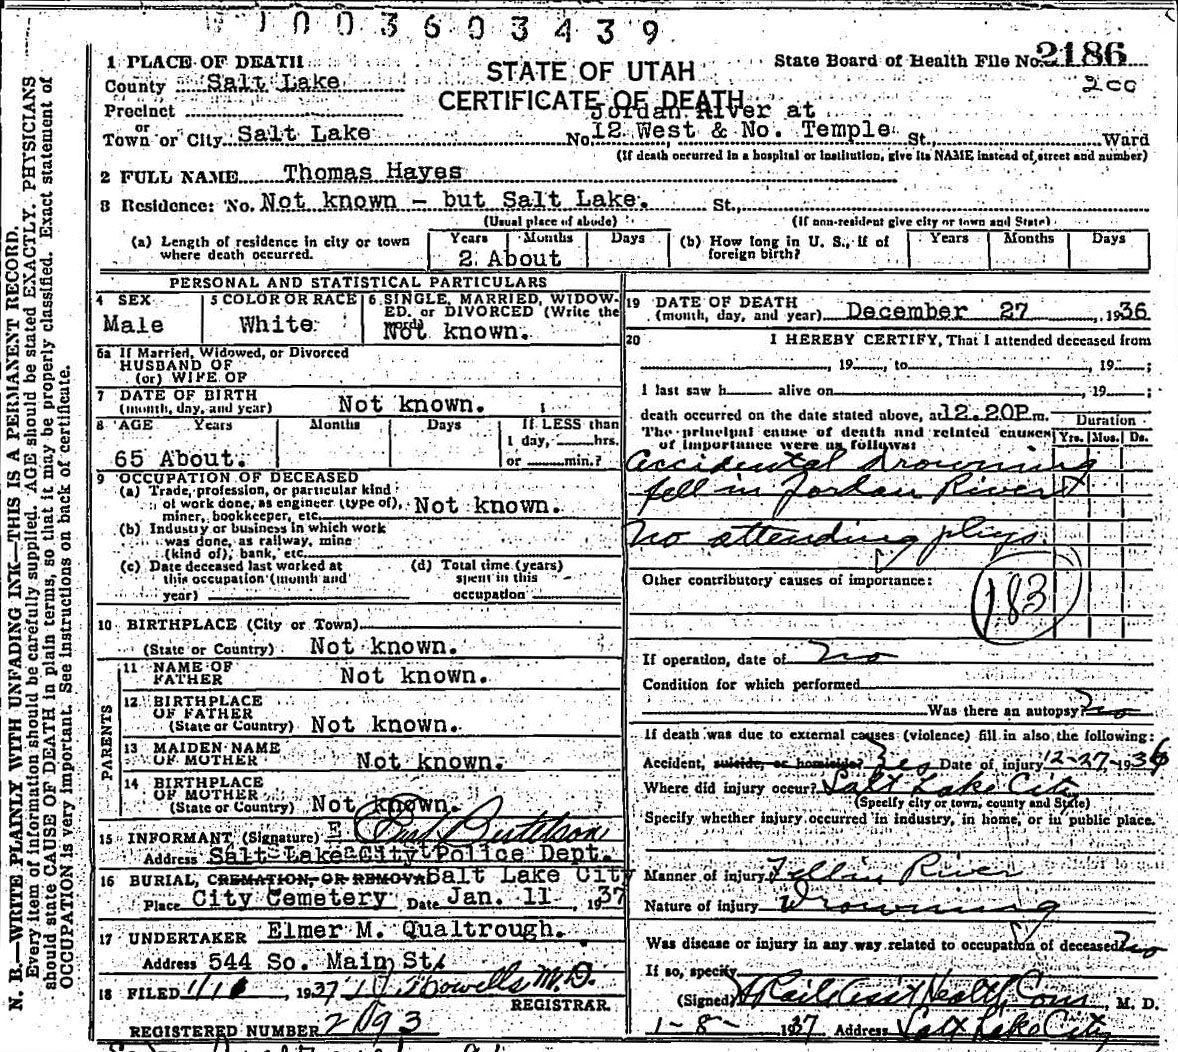 1003603439
1 PLACE OF DEATH
STATE OF UTAH
State Board of Health File No. 2186
County Salt Lake
200
CERTIFICATE OF DEATH
Precinct
Jordan River at
or
Town or City Salt Lake No. 12 West & No. Temple St., Ward
(If death occurred in a hospital or institution, give its NAME instead of street and number)
2 FULL NAME Thomas Hayes
3 Residence: No. Not known - but Salt Lake. St.,
(Usual place of abode) (If non-resident give city or town and State)
(a) Length of residence in city or town where death occurred. Years Months Days
2 About
(b) How long in U. S., if of foreign birth? Years Months Days
PERSONAL AND STATISTICAL PARTICULARS
4 SEX
Male
5 COLOR OR RACE
White
6 SINGLE, MARRIED, WIDOW-
ED, or DIVORCED (Write the
word)
Not known.
6a If Married, Widowed, or Divorced
HUSBAND OF
(or) WIFE OF
7 DATE OF BIRTH
(month, day, and year) Not known.
8 AGE Years Months Days If LESS than
1 day, hrs.
65 About. or min.?
9 OCCUPATION OF DECEASED
(a) Trade, profession, or particular kind
of work done, as engineer (type of), Not known.
miner, bookkeeper, etc.
(b) Industry or business in which work
was done, as railway, mine
(kind of), bank, etc.
(c) Date deceased last worked at
this occupation (month and
year)
(d) Total time (years)
spent in this
occupation
10 BIRTHPLACE (City or Town)
(State or Country) Not known.
PARENTS
11 NAME OF
FATHER Not known.
12 BIRTHPLACE
OF FATHER
(State or Country) Not known.
13 MAIDEN NAME
OF MOTHER Not known.
14 BIRTHPLACE
OF MOTHER
(State or Country) Not known.
15 INFORMANT (Signature) E
Address Salt Lake City Police Dept.
16 BURIAL, CREMATION, OR REMOVAL Salt Lake City
Place City Cemetery Date Jan. 11, 1937
17 UNDERTAKER Elmer M. Qualtrough.
Address 544 So. Main St.
18 FILED 1/11, 1937 M.D.
REGISTRAR
REGISTERED NUMBER 2093
19 DATE OF DEATH
(month, day, and year) December 27, 1936
20 I HEREBY CERTIFY, That I attended deceased from
, 19 , to , 19 ;
I last saw h alive on , 19 ;
death occurred on the date stated above, at 12.20P m.
Duration
The principal cause of death and related causes
of importance were as follows:
Yrs. Mos. Ds.
Accidental drowning
fell in Jordan River
No attending phys.
Other contributory causes of importance:
183
If operation, date of No
Condition for which performed
Was there an autopsy? No
If death was due to external causes (violence) fill in also the following:
Accident, suicide, or homicide? Yes Date of injury 12-27-1936
Where did injury occur? Salt Lake City
(Specify city or town, county and State)
Specify whether injury occurred in industry, in home, or in public place.
Manner of injury Fell in River
Nature of injury Drowning
Was disease or injury in any way related to occupation of deceased? No
If so, specify
(Signed) Health Com M. D.
1-8- 1937 Address Salt Lake City
N. B.—WRITE PLAINLY WITH UNFADING INK—THIS IS A PERMANENT RECORD.
Every item of information should be carefully supplied. AGE should be stated EXACTLY. PHYSICIANS
should state CAUSE OF DEATH in plain terms, so that it may be properly classified. Exact statement of
OCCUPATION is very important. See instructions on back of certificate.